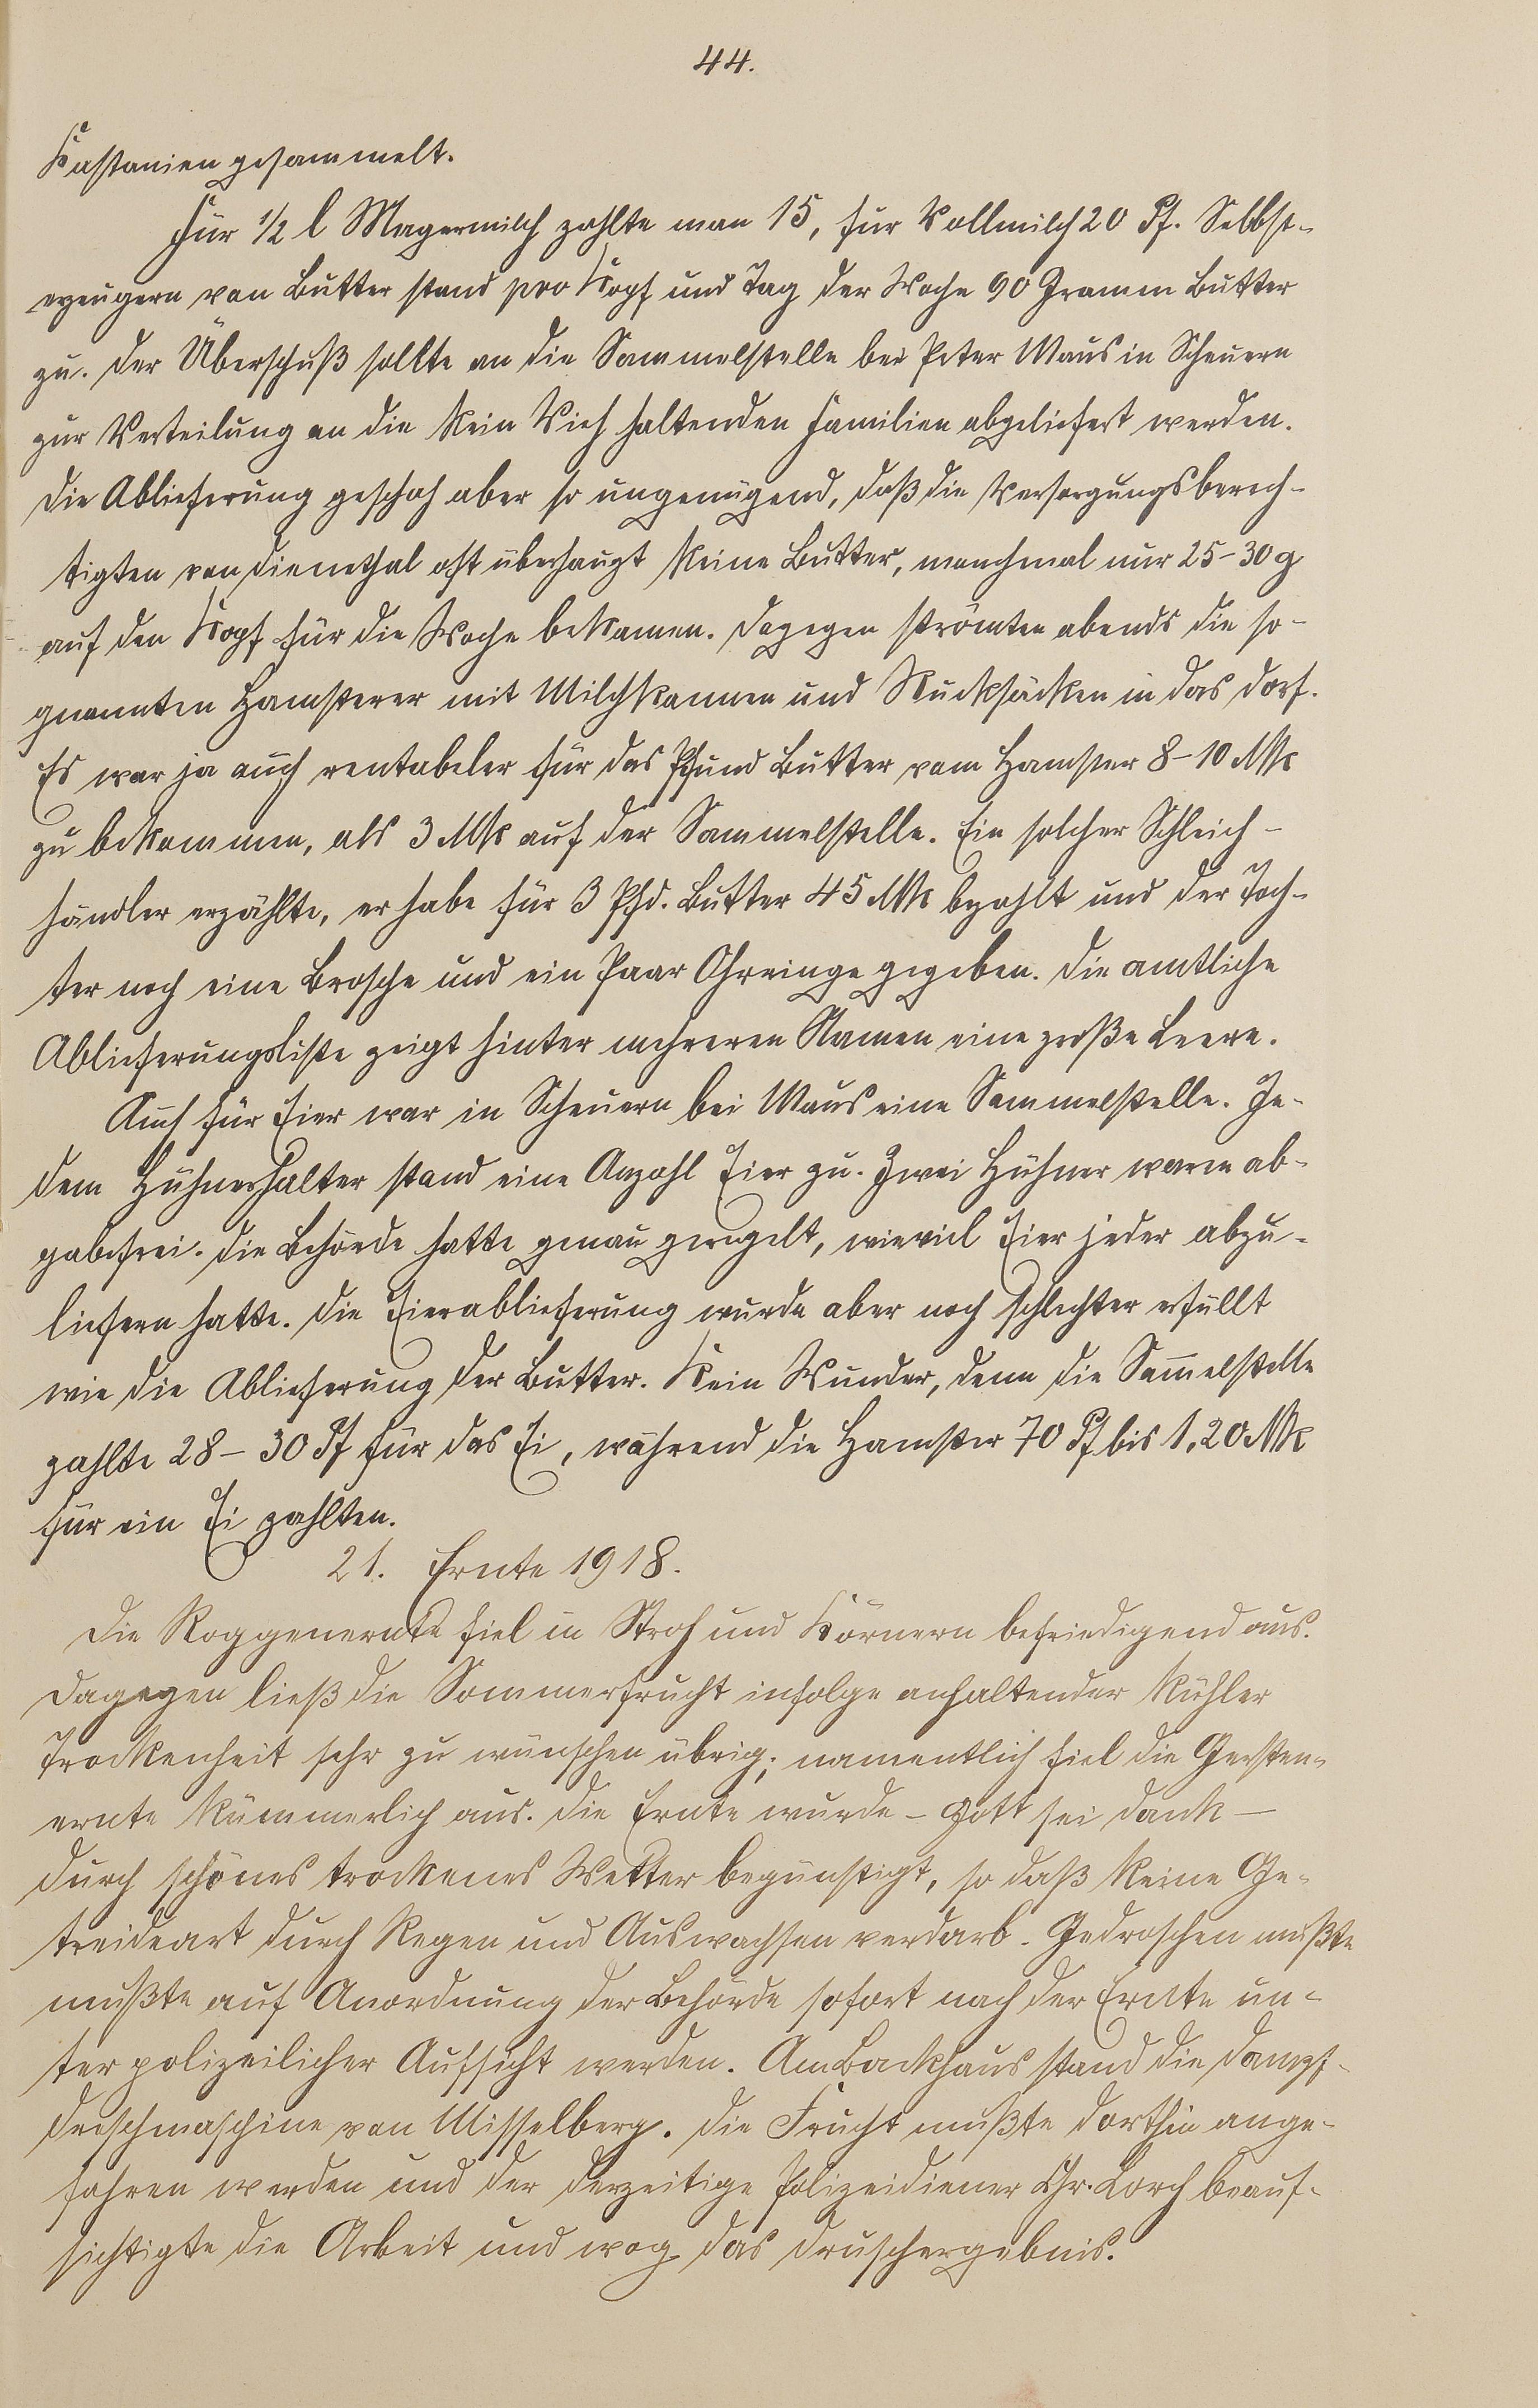 44.
Kastanien gesammelt.
Für ½ l Magermilch zahlte man 15, für Vollmilch 20 Pf. Selbst-
erzeugern von Butter stand pro Kopf und Tag der Woche 90 Gramm Butter
zu. Der Überschuß sollte an die Sammelstelle bei Peter Maus in Scheuern
zur Verteilung an die kein Vieh haltenden Familien abgeliefert werden.
Die Ablieferung geschah aber so ungenügend, daß die Versorgungsberech-
tigten von Dienethal oft überhaupt keine Butter, manchmal nur 25-30 g
auf den Kopf für die Woche bekamen. Dagegen strömten abends die so-
gnannten Hamsterer mit Milchkannen und Rucksäcken in das Dorf.
Es war ja auch rentabeler für das Pfund Butter vom Hamster 8-10 Mk
zu bekommen, als 3 Mk auf der Sammelstelle. Ein solcher Schleich-
händler erzählte, er habe für 3 Pfd. Butter 45 Mk bezahlt und der Toch-
ter noch eine Brosche und ein Paar Ohrringe gegeben. Die amtliche
Ablieferungsliste zeigt hinter mehreren Namen eine große Leere.
Auch für Eier war in Scheuern bei Maus eine Sammelstelle. Je-
dem Hühnerhalter stand eine Anzahl Eier zu. Zwei Hühner waren ab-
gabefrei. Die Behörde hatte genau geregelt, wieviel Eier jeder abzu-
liefern hatte. Die Eierablieferung wurde aber noch schlechter erfüllt
wie die Ablieferung der Butter. Kein Wunder, denn die Sam̄elstelle
zahlte 28-30 Pf für das Ei, während die Hamster 70 Pf bis 1,20 Mk
für ein Ei zahlten.
21. Ernte 1918.
Die Roggenernte fiel in Stroh und Körnern befriedigend aus.
Dagegen ließ die Sommerfrucht infolge anhaltender kühler
Trockenheit sehr zu wünschen übrig; namentlich fiel die Gersten-
ernte kümmerlich aus. Die Ernte wurde - Gott sei Dank -
durch schönes trockenes Wetter begünstigt, so daß keine Ge-
treideart durch Regen und Auswachsen verdarb. Gedroschen mußte
mußte auf Anordnung der Behörde sofort nach der Ernte un-
ter polizeilicher Aufsicht werden. Am Backhaus stand die Dampf-
dreschmaschine von Misselberg. Die Frucht mußte dorthin ange-
fahren werden und der derzeitige Polizeidiener Chr. Lorch beauf-
sichtigte die Arbeit und wog das Druschergebnis.